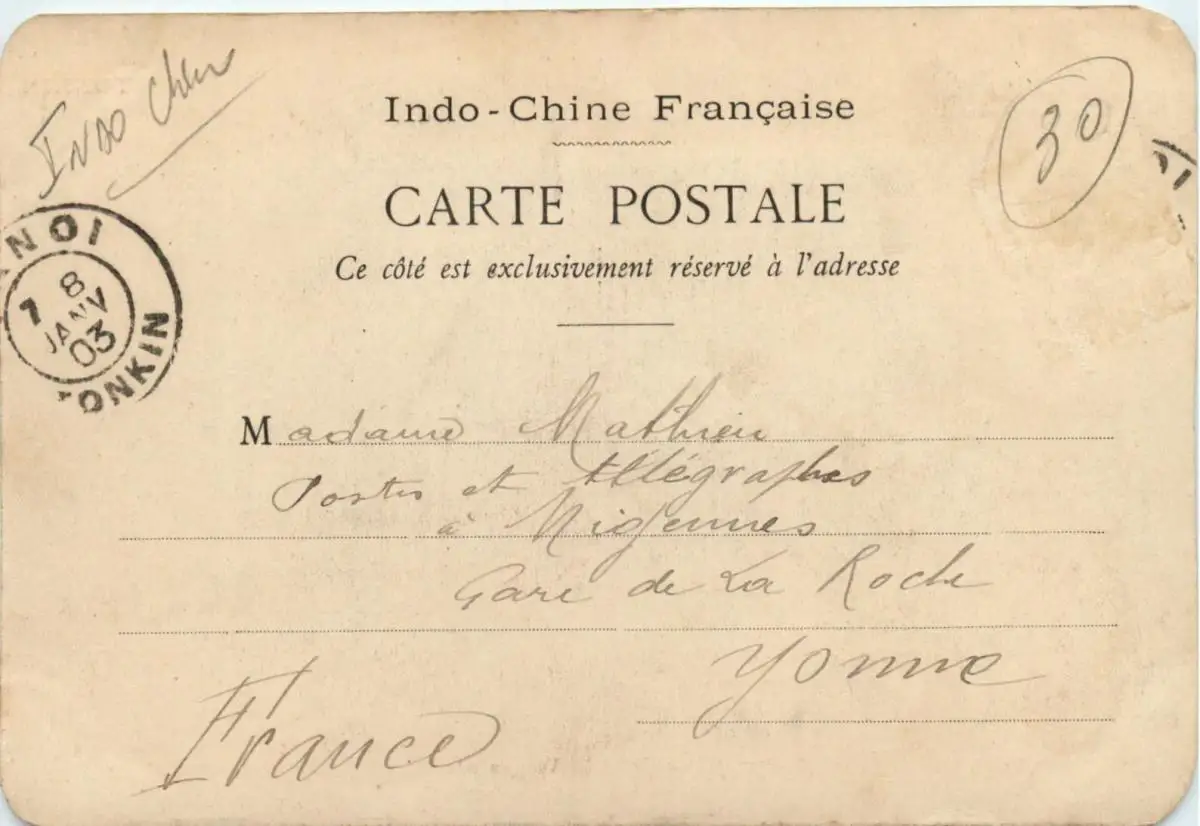 Indo Chine
30
Indo-Chine Française
CARTE POSTALE
Ce côté est exclusivement réservé à l'adresse
ANOI
7 8
JANV
03
TONKIN
Madame Mathieu
Postes et Télégraphes
à Migennes
Gare de La Roche
Yonne
France